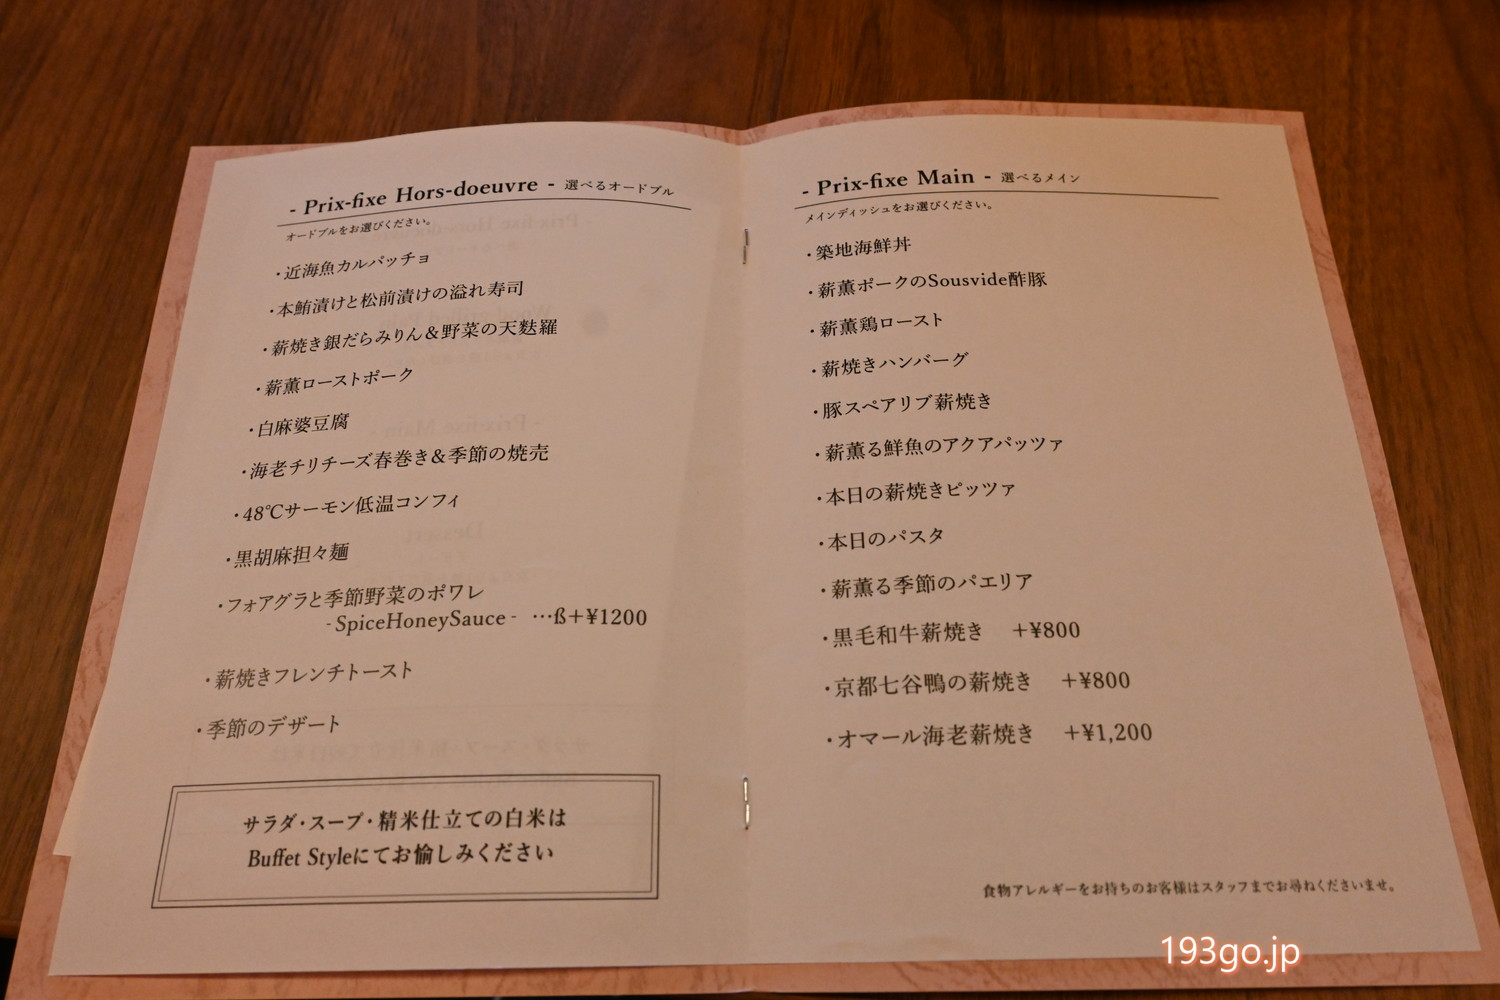 - Prix-fixe Hors-doeuvre - 選べるオードブル
オードブルをお選びください。
・近海魚カルパッチョ
・本鮪漬けと松前漬けの溢れ寿司
・薪焼き銀だらみりん&野菜の天麩羅
・薪薫ローストポーク
・白麻婆豆腐
・海老チリチーズ春巻き&季節の焼売
・48℃サーモン低温コンフィ
・黒胡麻担々麺
・フォアグラと季節野菜のポワレ
-SpiceHoneySauce- …ß+¥1200
・薪焼きフレンチトースト
・季節のデザート
サラダ・スープ・精米仕立ての白米は
Buffet Styleにてお愉しみください
- Prix-fixe Main - 選べるメイン
メインディッシュをお選びください。
・築地海鮮丼
・薪薫ポークのSousvide酢豚
・薪薫鶏ロースト
・薪焼きハンバーグ
・豚スペアリブ薪焼き
・薪薫る鮮魚のアクアパッツァ
・本日の薪焼きピッツァ
・本日のパスタ
・薪薫る季節のパエリア
・黒毛和牛薪焼き +¥800
・京都七谷鴨の薪焼き +¥800
・オマール海老薪焼き +¥1,200
食物アレルギーをお持ちのお客様はスタッフまでお尋ねくださいませ。
193go.jp